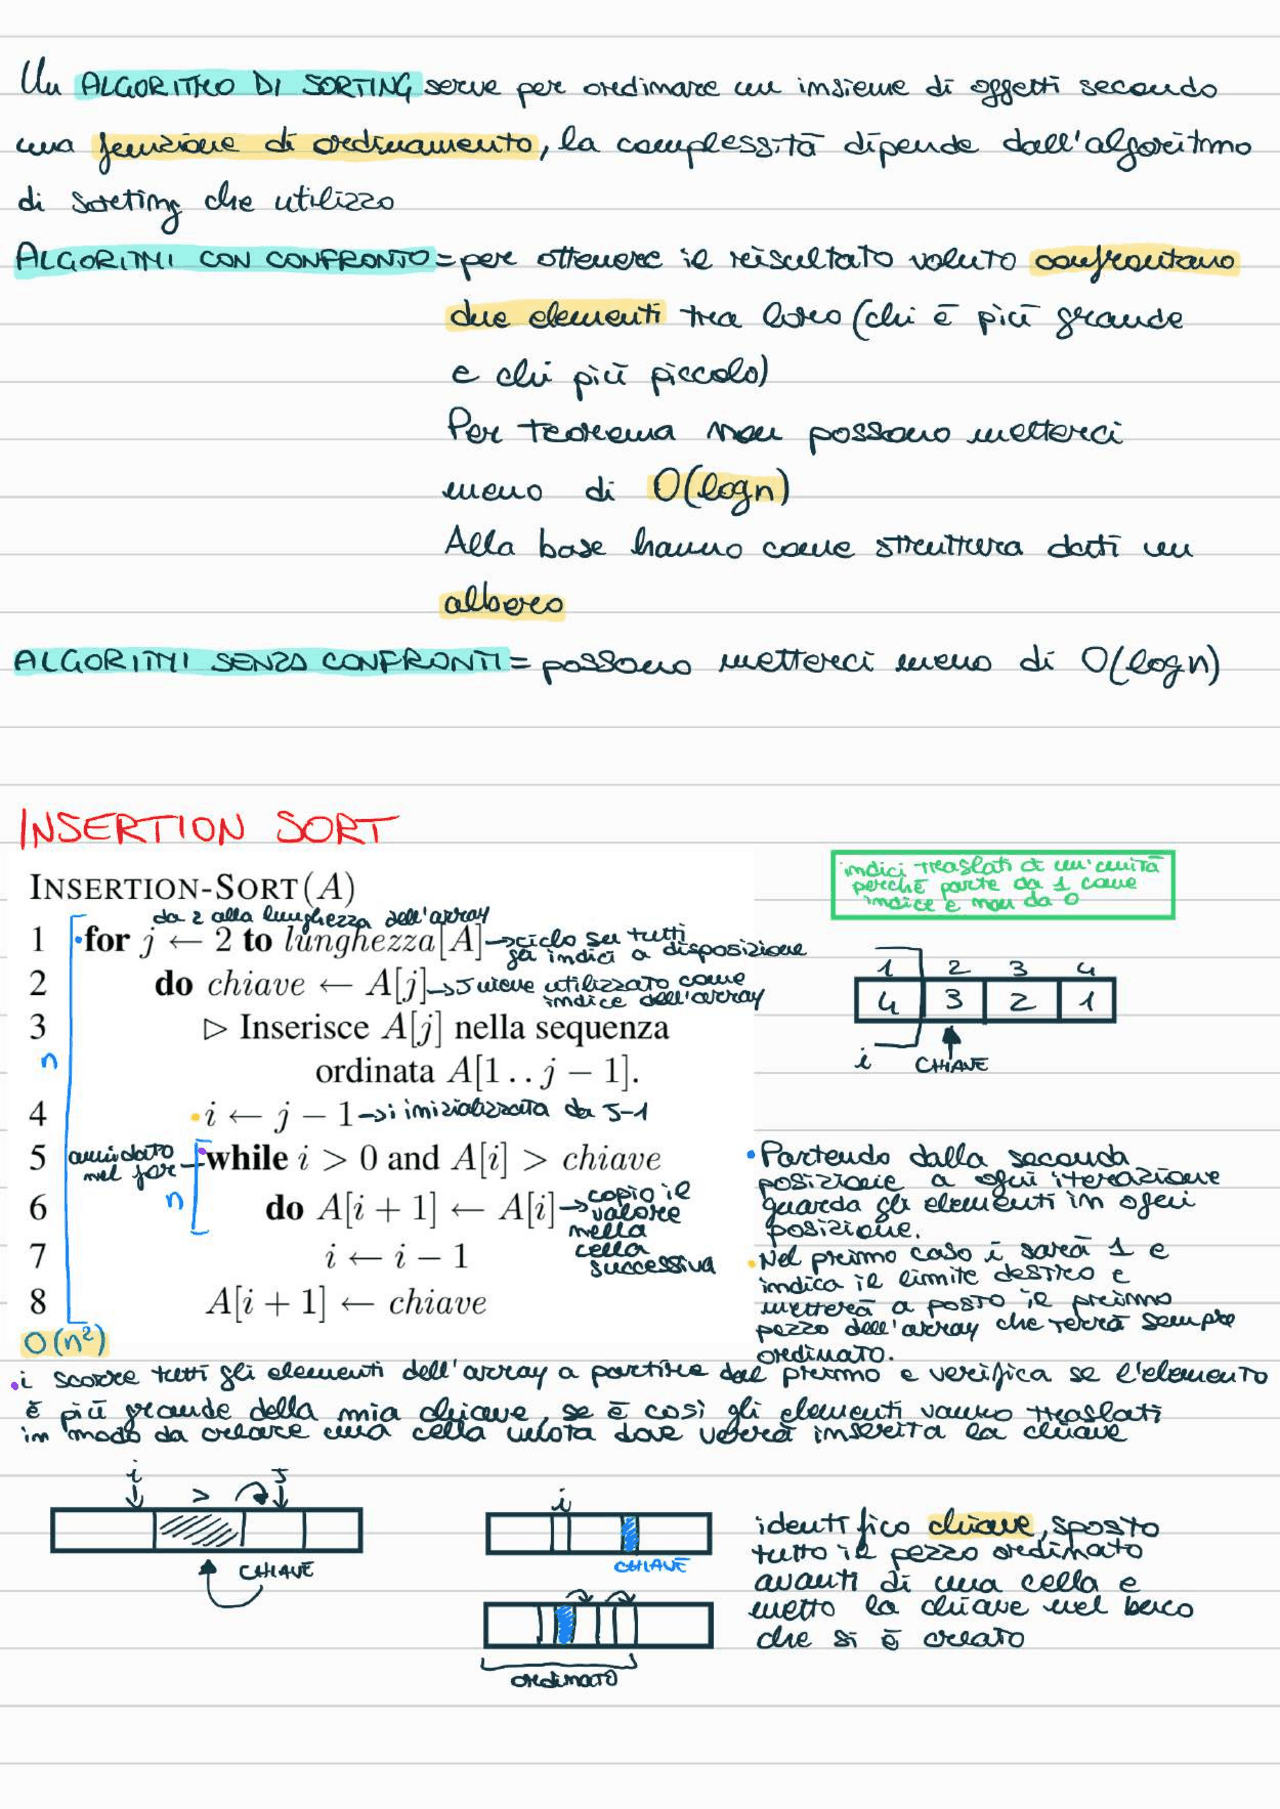 Un ALGORITMO DI SORTING serve per ordinare un insieme di oggetti secondo
una funzione di ordinamento, la complessità dipende dall'algoritmo
di sorting che utilizzo
ALGORITMI CON CONFRONTO = per ottenere il risultato voluto confrontano
due elementi tra loro (chi è più grande
e chi più piccolo)
Per teorema non possono metterci
meno di O(logn)
Alla base hanno come struttura dati un
albero
ALGORITMI SENZA CONFRONTI = possono metterci meno di O(logn)
INSERTION SORT
indici traslati di un'unità
perchè parte da 1 come
indice e non da 0
INSERTION-SORT(A)
da 2 alla lunghezza dell'array
1 for j ← 2 to lunghezza[A] → ciclo su tutti
gli indici a disposizione
2 do chiave ← A[j] → J viene utilizzato come
indice dell'array
3 ▷ Inserisce A[j] nella sequenza
ordinata A[1 . . j − 1].
n
4 i ← j − 1 → i inizializzata da J-1
5 while i > 0 and A[i] > chiave
annidato
nel for
n
6 do A[i + 1] ← A[i] → copio il
valore
nella
cella
successiva
7 i ← i − 1
8 A[i + 1] ← chiave
O(n²)
1 2 3 4
4 3 2 1
i CHIAVE
• Partendo dalla seconda
posizione a ogni iterazione
guarda gli elementi in ogni
posizione.
• Nel primo caso i sarà 1 e
indica il limite destro e
metterà a posto il primo
pezzo dell'array che terrà sempre
ordinato.
• i scorre tutti gli elementi dell'array a partire dal primo e verifica se l'elemento
è più grande della mia chiave, se è così gli elementi vanno traslati
in modo da creare una cella vuota dove verrà inserita la chiave
i > J
CHIAVE
i
CHIAVE
ordinato
identifico chiave, sposto
tutto il pezzo ordinato
avanti di una cella e
metto la chiave nel buco
che si è creato